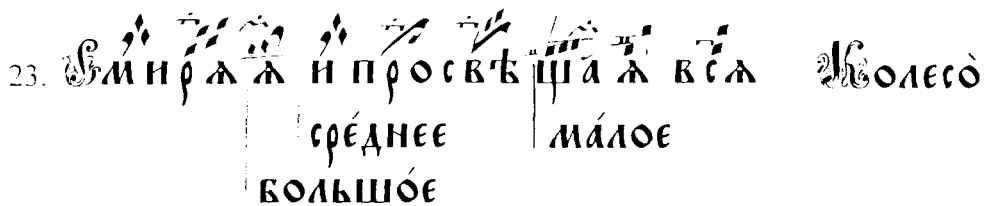 23. Смирѧѧ и просвѣща́ѧ всѧ Колесо̀
сре́днее ма́лое
большо́е